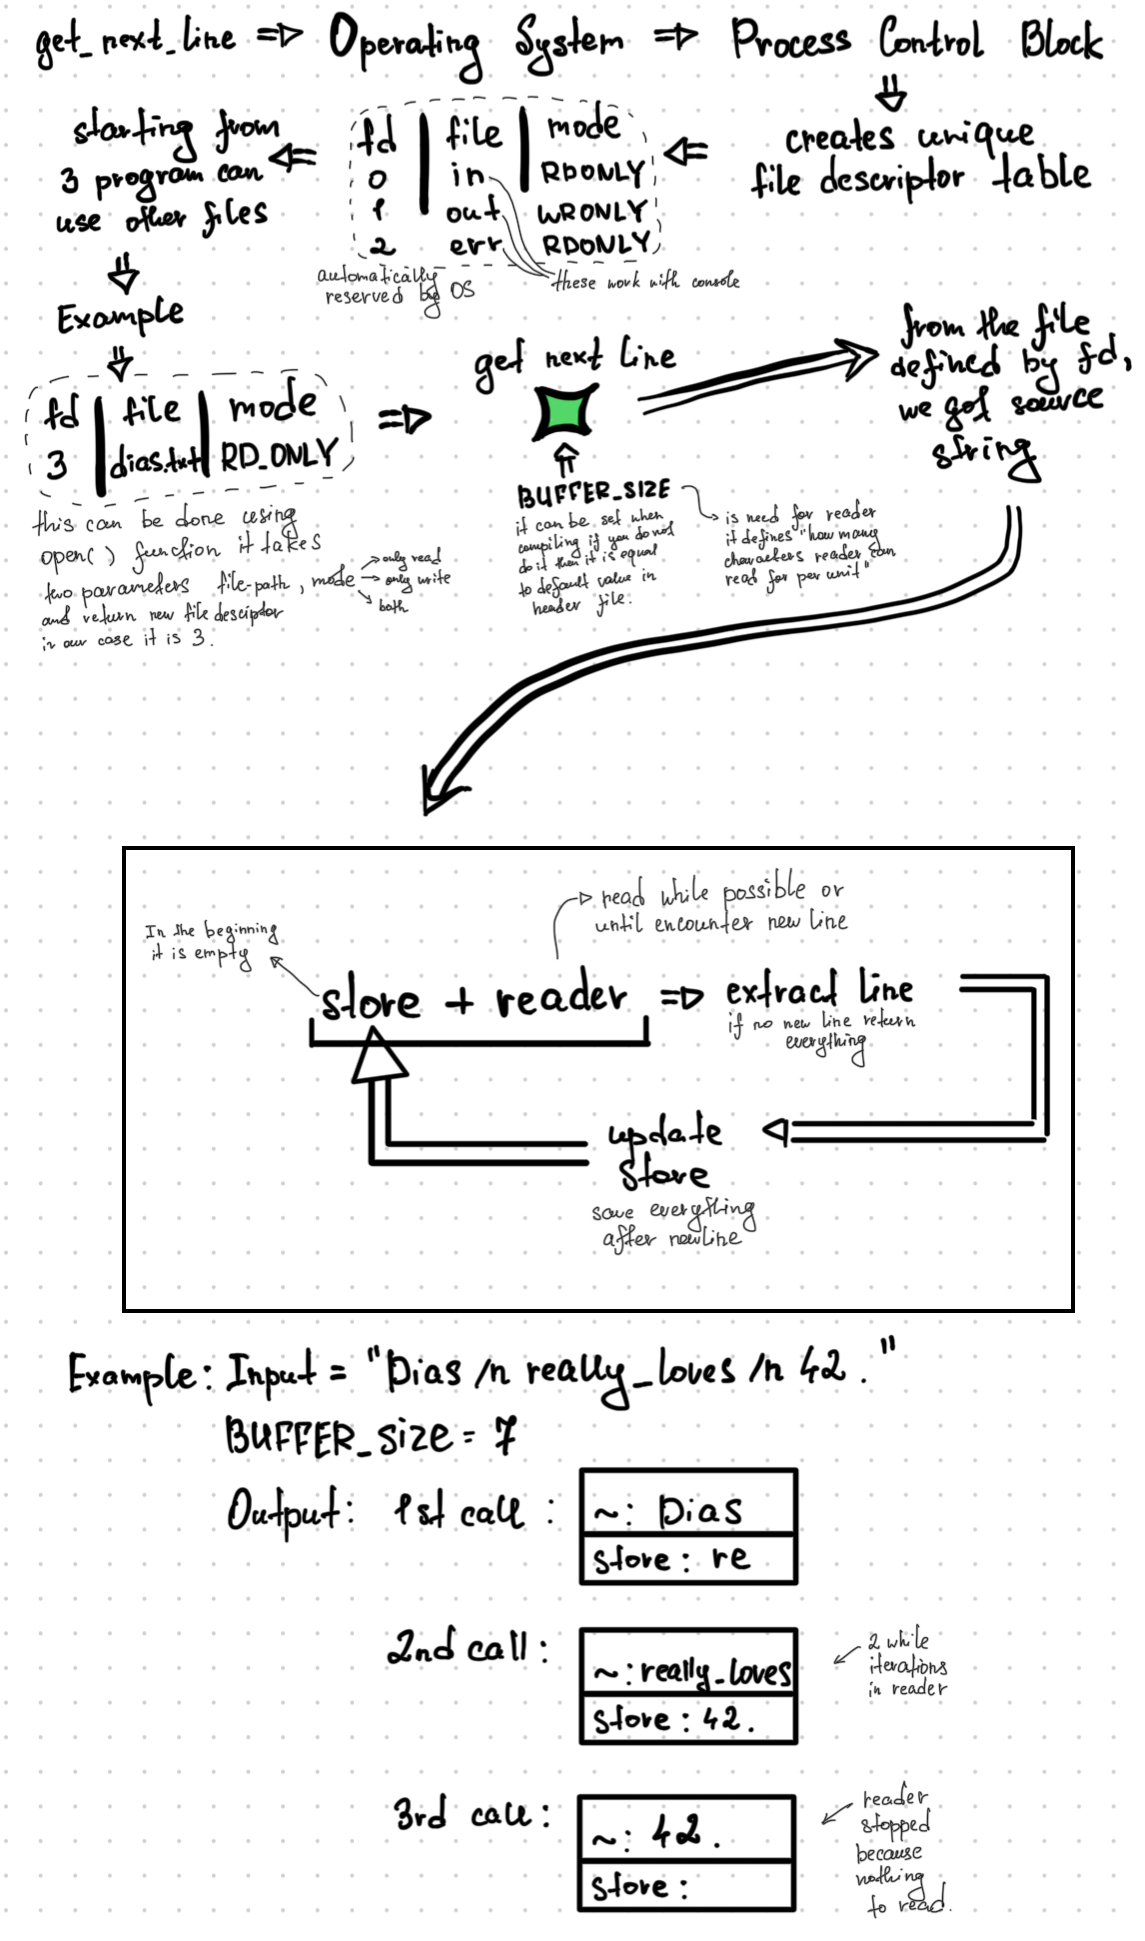 get_next_line => Operating System => Process Control Block
creates unique
file descriptor table
fd | file | mode
0 in RDONLY
1 out WRONLY
2 err RDONLY
automatically
reserved by OS
these work with console
starting from
3 program can
use other files
Example
fd | file | mode
3 | dias.txt | RD_ONLY
this can be done using
open( ) function it takes
two parameters file-path, mode
only read
only write
both
and return new file desciptor
in our case it is 3.
get next line
BUFFER_SIZE
it can be set when
compiling if you do not
do it then it is equal
to default value in
header file.
is need for reader
it defines "how many
characters reader can
read for per unit"
from the file
defined by fd,
we got source
string
In the beginning
it is empty
read while possible or
until encounter new line
store + reader => extract line
if no new line return
everything
update
store
save everything
after newline
Example: Input = "Dias /n really_loves /n 42."
BUFFER_size = 7
Output: 1st call :
~: Dias
store: re
2nd call:
~: really_loves
store: 42.
2 while
iterations
in reader
3rd call:
~: 42.
store:
reader
stopped
because
nothing
to read.